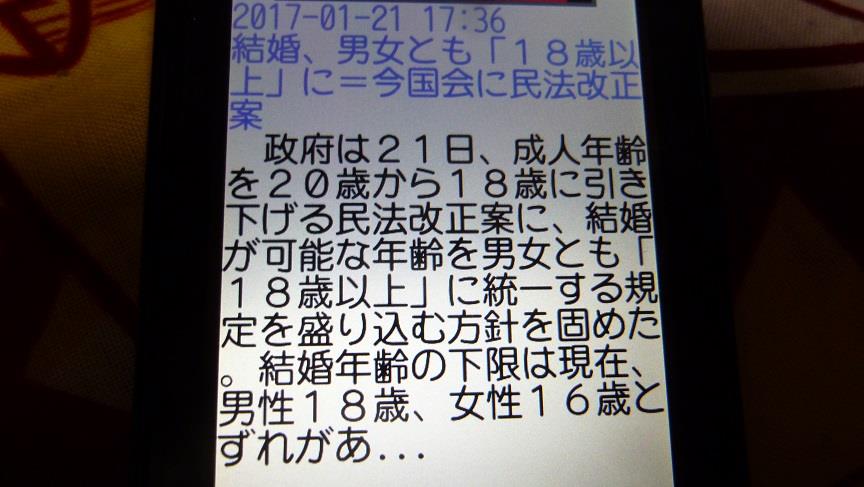 2017-01-21 17:36
結婚、男女とも「１８歳以
上」に＝今国会に民法改正
案
　政府は２１日、成人年齢
を２０歳から１８歳に引き
下げる民法改正案に、結婚
が可能な年齢を男女とも「
１８歳以上」に統一する規
定を盛り込む方針を固めた
。結婚年齢の下限は現在、
男性１８歳、女性１６歳と
ずれがあ...